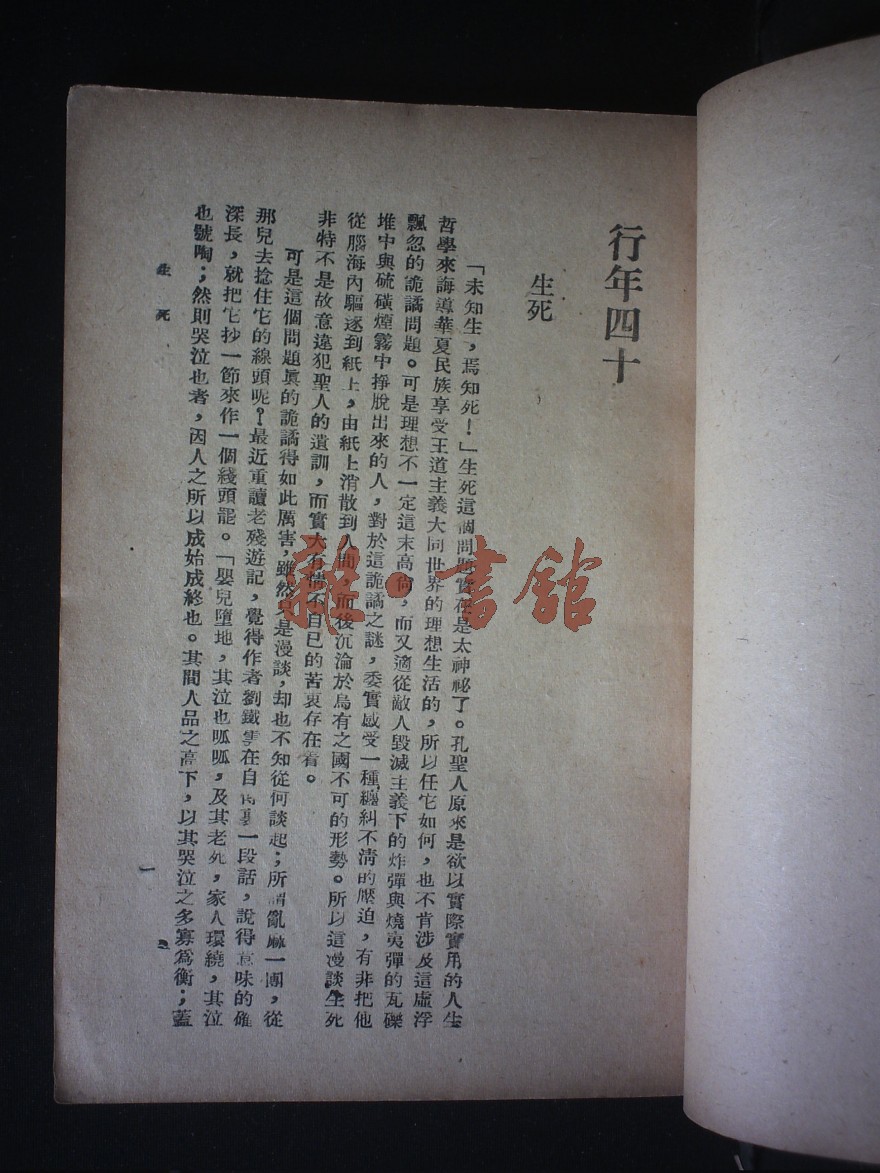 行年四十
生死
「未知生，焉知死！」生死這個問題實在是太神祕了。孔聖人原來是欲以實際實用的人生
哲學來誨導華夏民族享受王道主義大同世界的理想生活的，所以任它如何，也不肯涉及這虛浮
飄忽的詭譎問題。可是理想不一定這末高尙，而又適從敵人毀滅主義下的炸彈與燒夷彈的瓦礫
堆中與硫磺煙霧中掙脫出來的人，對於這詭譎之謎，委實感受一種纏糾不淸的壓迫，有非把他
從腦海內驅逐到紙上，由紙上消散到人間，而後沉淪於烏有之國不可的形勢。所以這漫談生死
非特不是故意違犯聖人的遺訓，而實大有情不自已的苦衷存在着。
可是這個問題眞的詭譎得如此厲害，雖然只是漫談，却也不知從何談起；所謂亂麻一團，從
那兒去捻住它的線頭呢？最近重讀老殘遊記，覺得作者劉鐵雲在自序裏一段話，說得意味的確
深長，就把它抄一節來作一個綫頭罷。「嬰兒墮地，其泣也呱呱，及其老死，家人環繞，其泣
也號啕；然則哭泣也者，因人之所以成始成終也。其間人品之高下，以其哭泣之多寡爲衡；蓋
生死
一
雜·書館